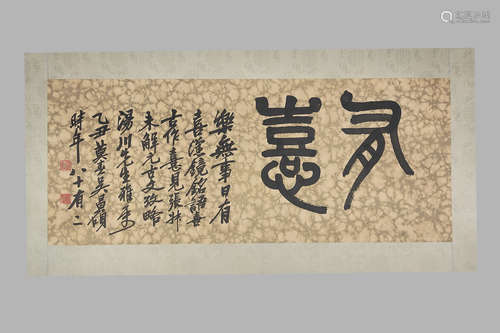 有
喜
樂無事日有
喜漢鏡銘語喜
吉作憙見張叔
未解元古文攷略
湯川先生雅属
乙丑莫春吴昌碩
時年八十有二